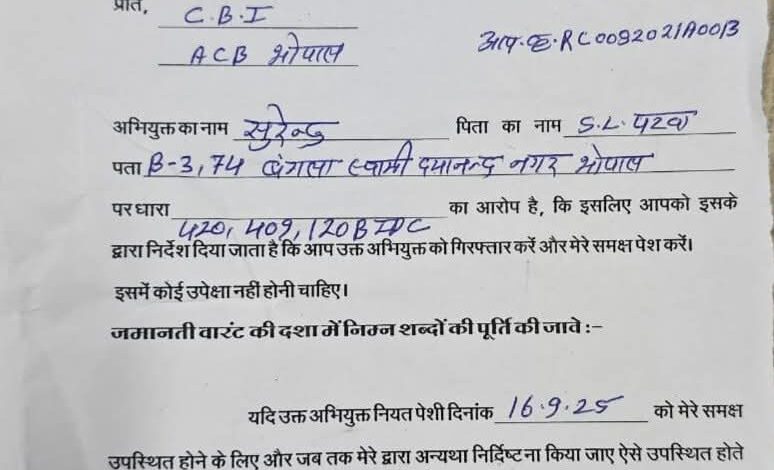 प्रति,
C.B.I
ACB भोपाल
अप.क्र. RC0092021A0013
अभियुक्त का नाम सुरेन्द्र पिता का नाम S.L. पटवा
पता B-3, 74 बंगला स्वामी दयानन्द नगर भोपाल
पर धारा 420, 409, 120B IPC का आरोप है, कि इसलिए आपको इसके
द्वारा निर्देश दिया जाता है कि आप उक्त अभियुक्त को गिरफ्तार करें और मेरे समक्ष पेश करें।
इसमें कोई उपेक्षा नहीं होनी चाहिए।
जमानती वारंट की दशा में निम्न शब्दों की पूर्ति की जावे :–
यदि उक्त अभियुक्त नियत पेशी दिनांक 16.9.25 को मेरे समक्ष
उपस्थित होने के लिए और जब तक मेरे द्वारा अन्यथा निर्दिष्ट ना किया जाए ऐसे उपस्थित होते